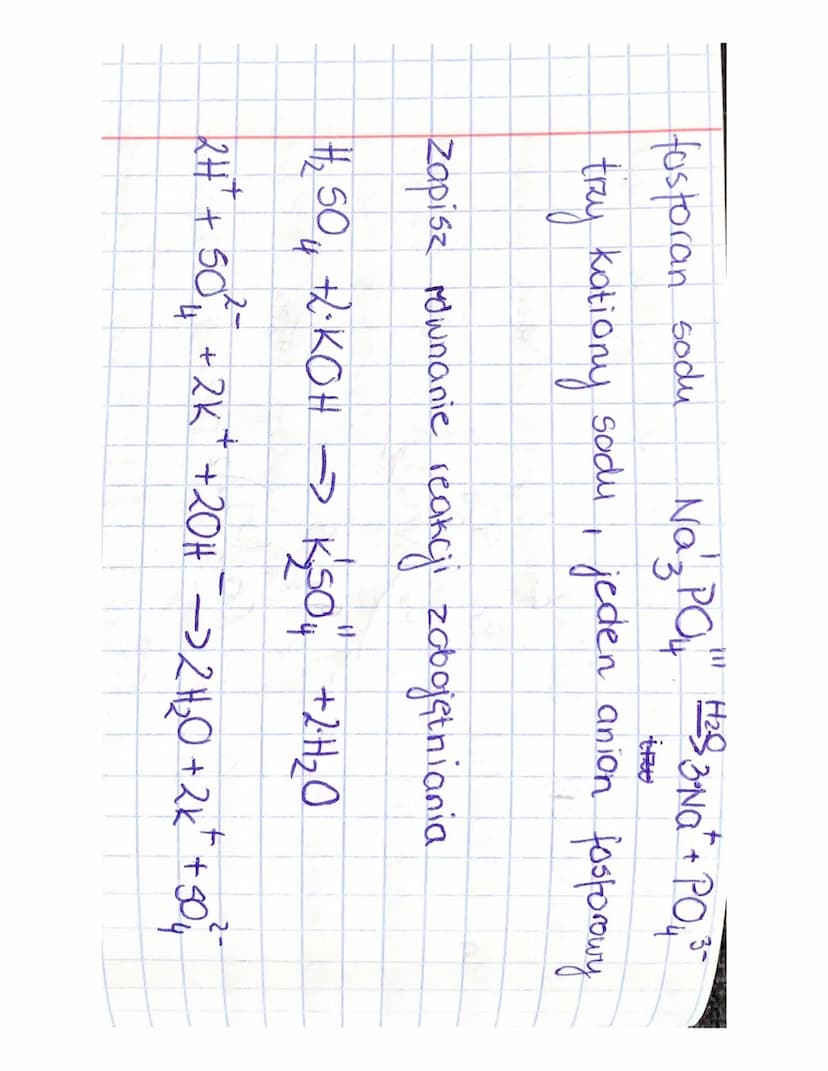 fosforan sodu Na₃ᴵPO₄ᴵᴵᴵ H₂O→ 3·Na⁺ + PO₄³⁻
trzy kationy sodu, jeden anion fosforowy
Zapisz równanie reakcji zobojętniania
H₂SO₄ + 2·KOH → K₂ᴵSO₄ᴵᴵ + 2·H₂O
2H⁺ + SO₄²⁻ + 2K⁺ + 2OH⁻ → 2H₂O + 2K⁺ + SO₄²⁻